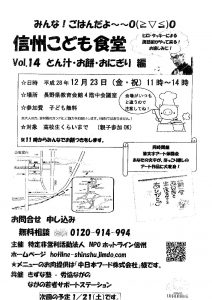 みんな！ごはんだよ～～O(≧▽≦)O
信州こども食堂
Vol.14 とん汁・お餅・おにぎり 編
☆日時 平成28年12月23日(金・祝)11時～14時
☆場所 長野県教育会館4階中会議室
☆参加費 子ども無料
☆対象 高校生くらいまで（親子参加OK）
※11時からみんなでお餅つきをします。
お問合せ 申し込み
無料相談 0120-914-994
主催 特定非営利活動法人 NPOホットライン信州
ホームページ hotline-shinshu.jimdo.com
☆メニューのお肉提供は「中日本フード株式会社」様です。
共催 きずな塾・労協ながの
ながの若者サポートステーション
次回の予定 1/21(土)です。